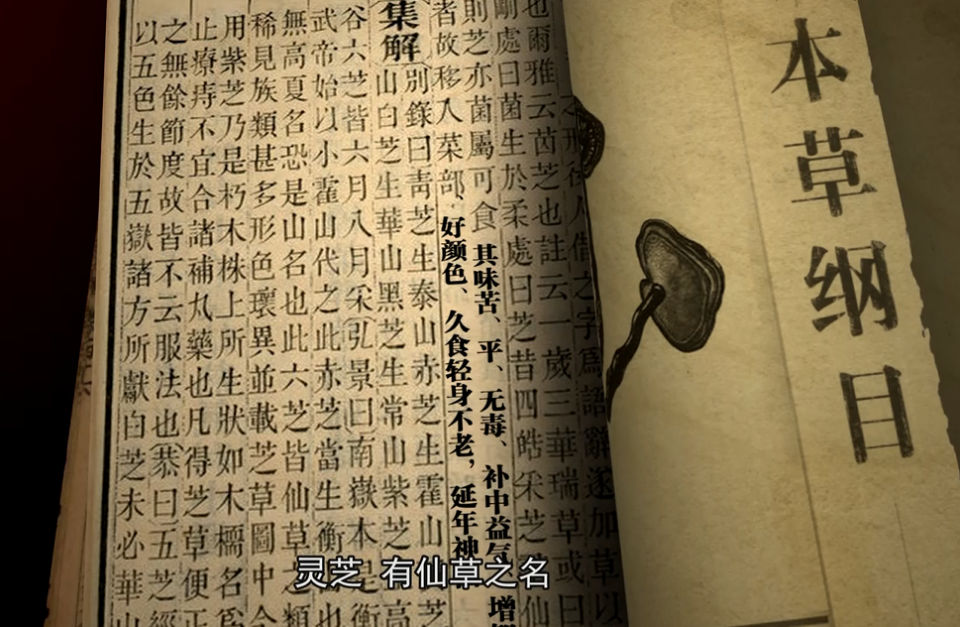 本草纲目
之形後人借之字爲語辭遂加草以
也爾雅云茵芝也註云一歲三華瑞草或曰
剛處曰菌生於柔處曰芝昔四皓采芝仙
則芝亦菌屬可食
其味苦、平、无毒、补中益气增
者故移入菜部、
好颜色、久食轻身不老，延年神
集解
別錄曰靑芝生泰山赤芝生霍山芝
山白芝生華山黑芝生常山紫芝高
谷六芝皆六月八月采弘景曰南嶽本是衡
武帝始以小霍山代之此赤芝當生衡也
無高夏名恐是山名也此六芝皆仙草之類
稀見族類甚多形色瓌異並載芝草圖中今
用紫芝乃是朽木株上所生狀如木檽名爲
止療痔不宜合諸補丸藥也凡得芝草便正
之無餘節度故皆不云服法也恭曰五芝經
以五色生於五嶽諸方所獻白芝未必華山
灵芝 有仙草之名